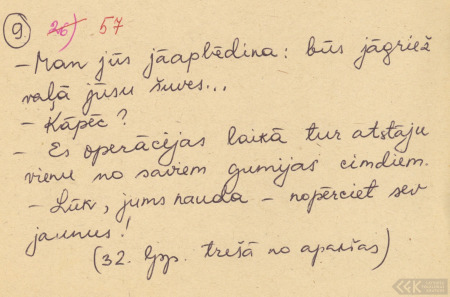 9. 26) 57
- Man jūs jāapbēdina: būs jāgriež
vaļā jūsu šuves...
- Kāpēc?
- Es operācijas laikā tur atstāju
vienu no saviem gumijas cimdiem.
- Lūk, jums nauda - nopērciet sev
jaunus!
(32. lpp. trešā no apakšas)